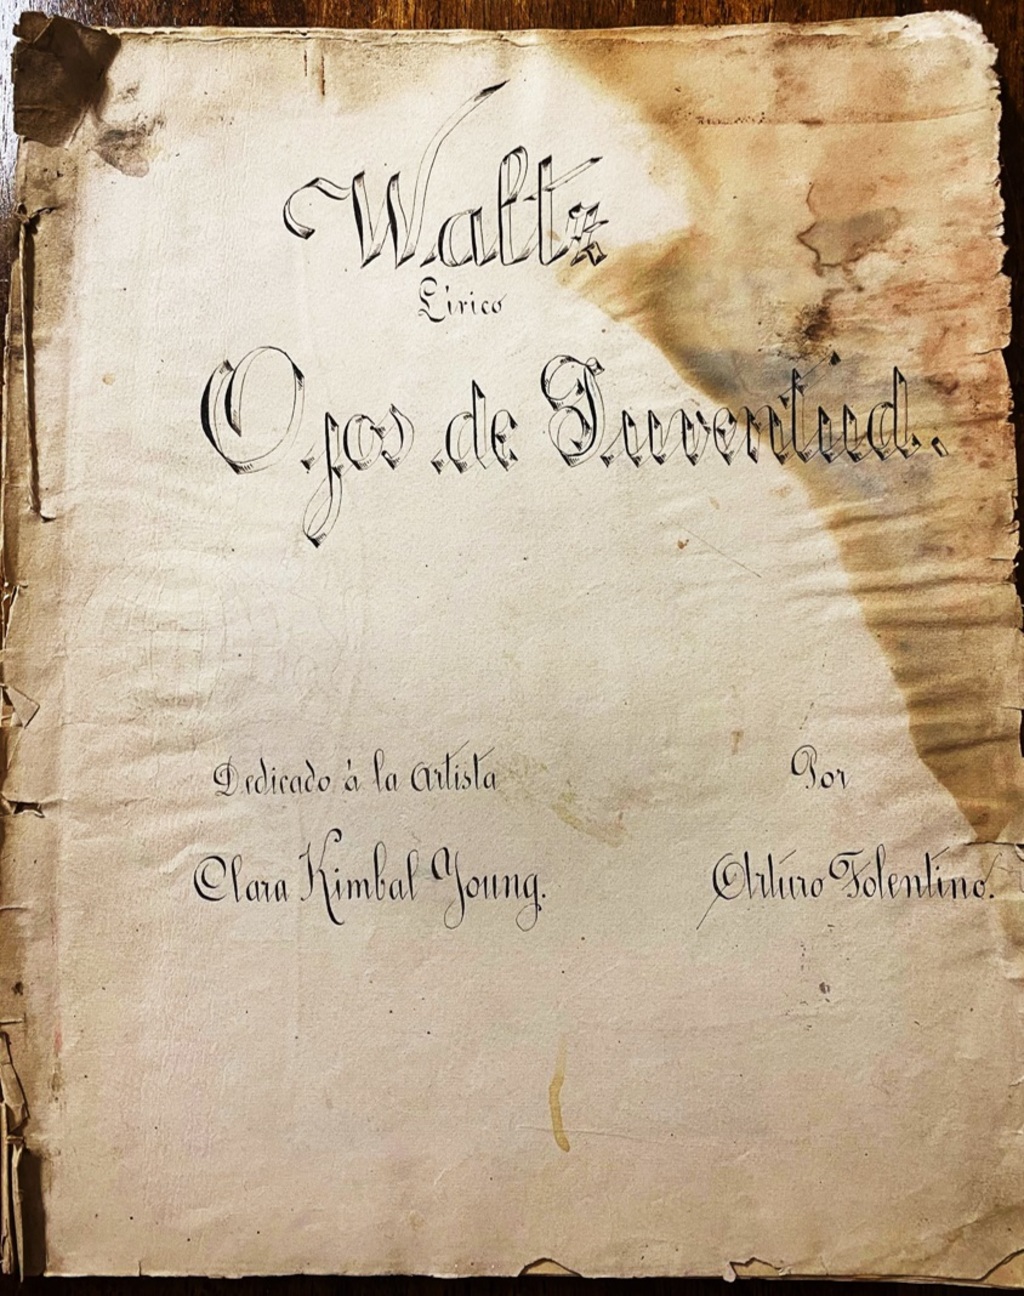 Waltz
Lírico
Ojos de Juventud.
Dedicado á la Artista
Clara Kimbal Young.
Por
Arturo Tolentino.